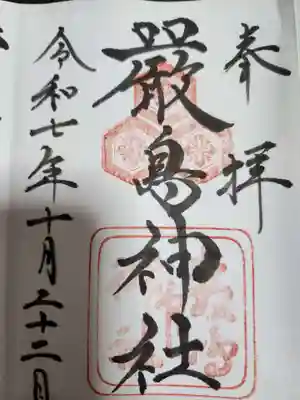 奉拝
厳島神社
令和七年十月二十二日